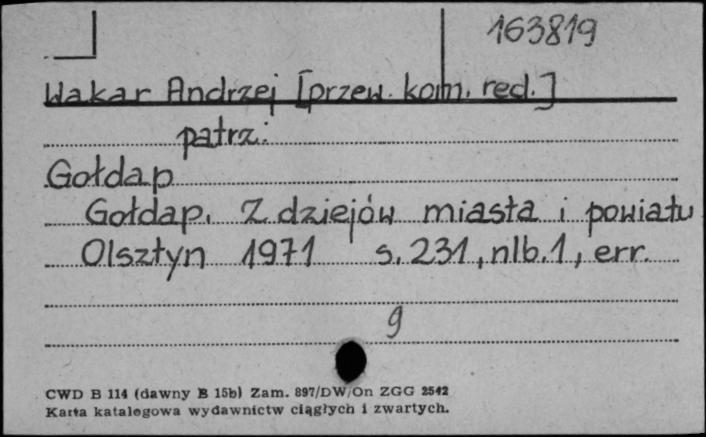 163819
Wakar Andrzej [przew. kom. red.]
patrz:
Gołdap
Gołdap. Z dziejów miasta i powiatu
Olsztyn 1971 s. 231, nlb. 1, err.
9
CWD B 114 (dawny B 15b) Zam. 897/DW/On ZGG 2542
Karta katalogowa wydawnictw ciągłych i zwartych.